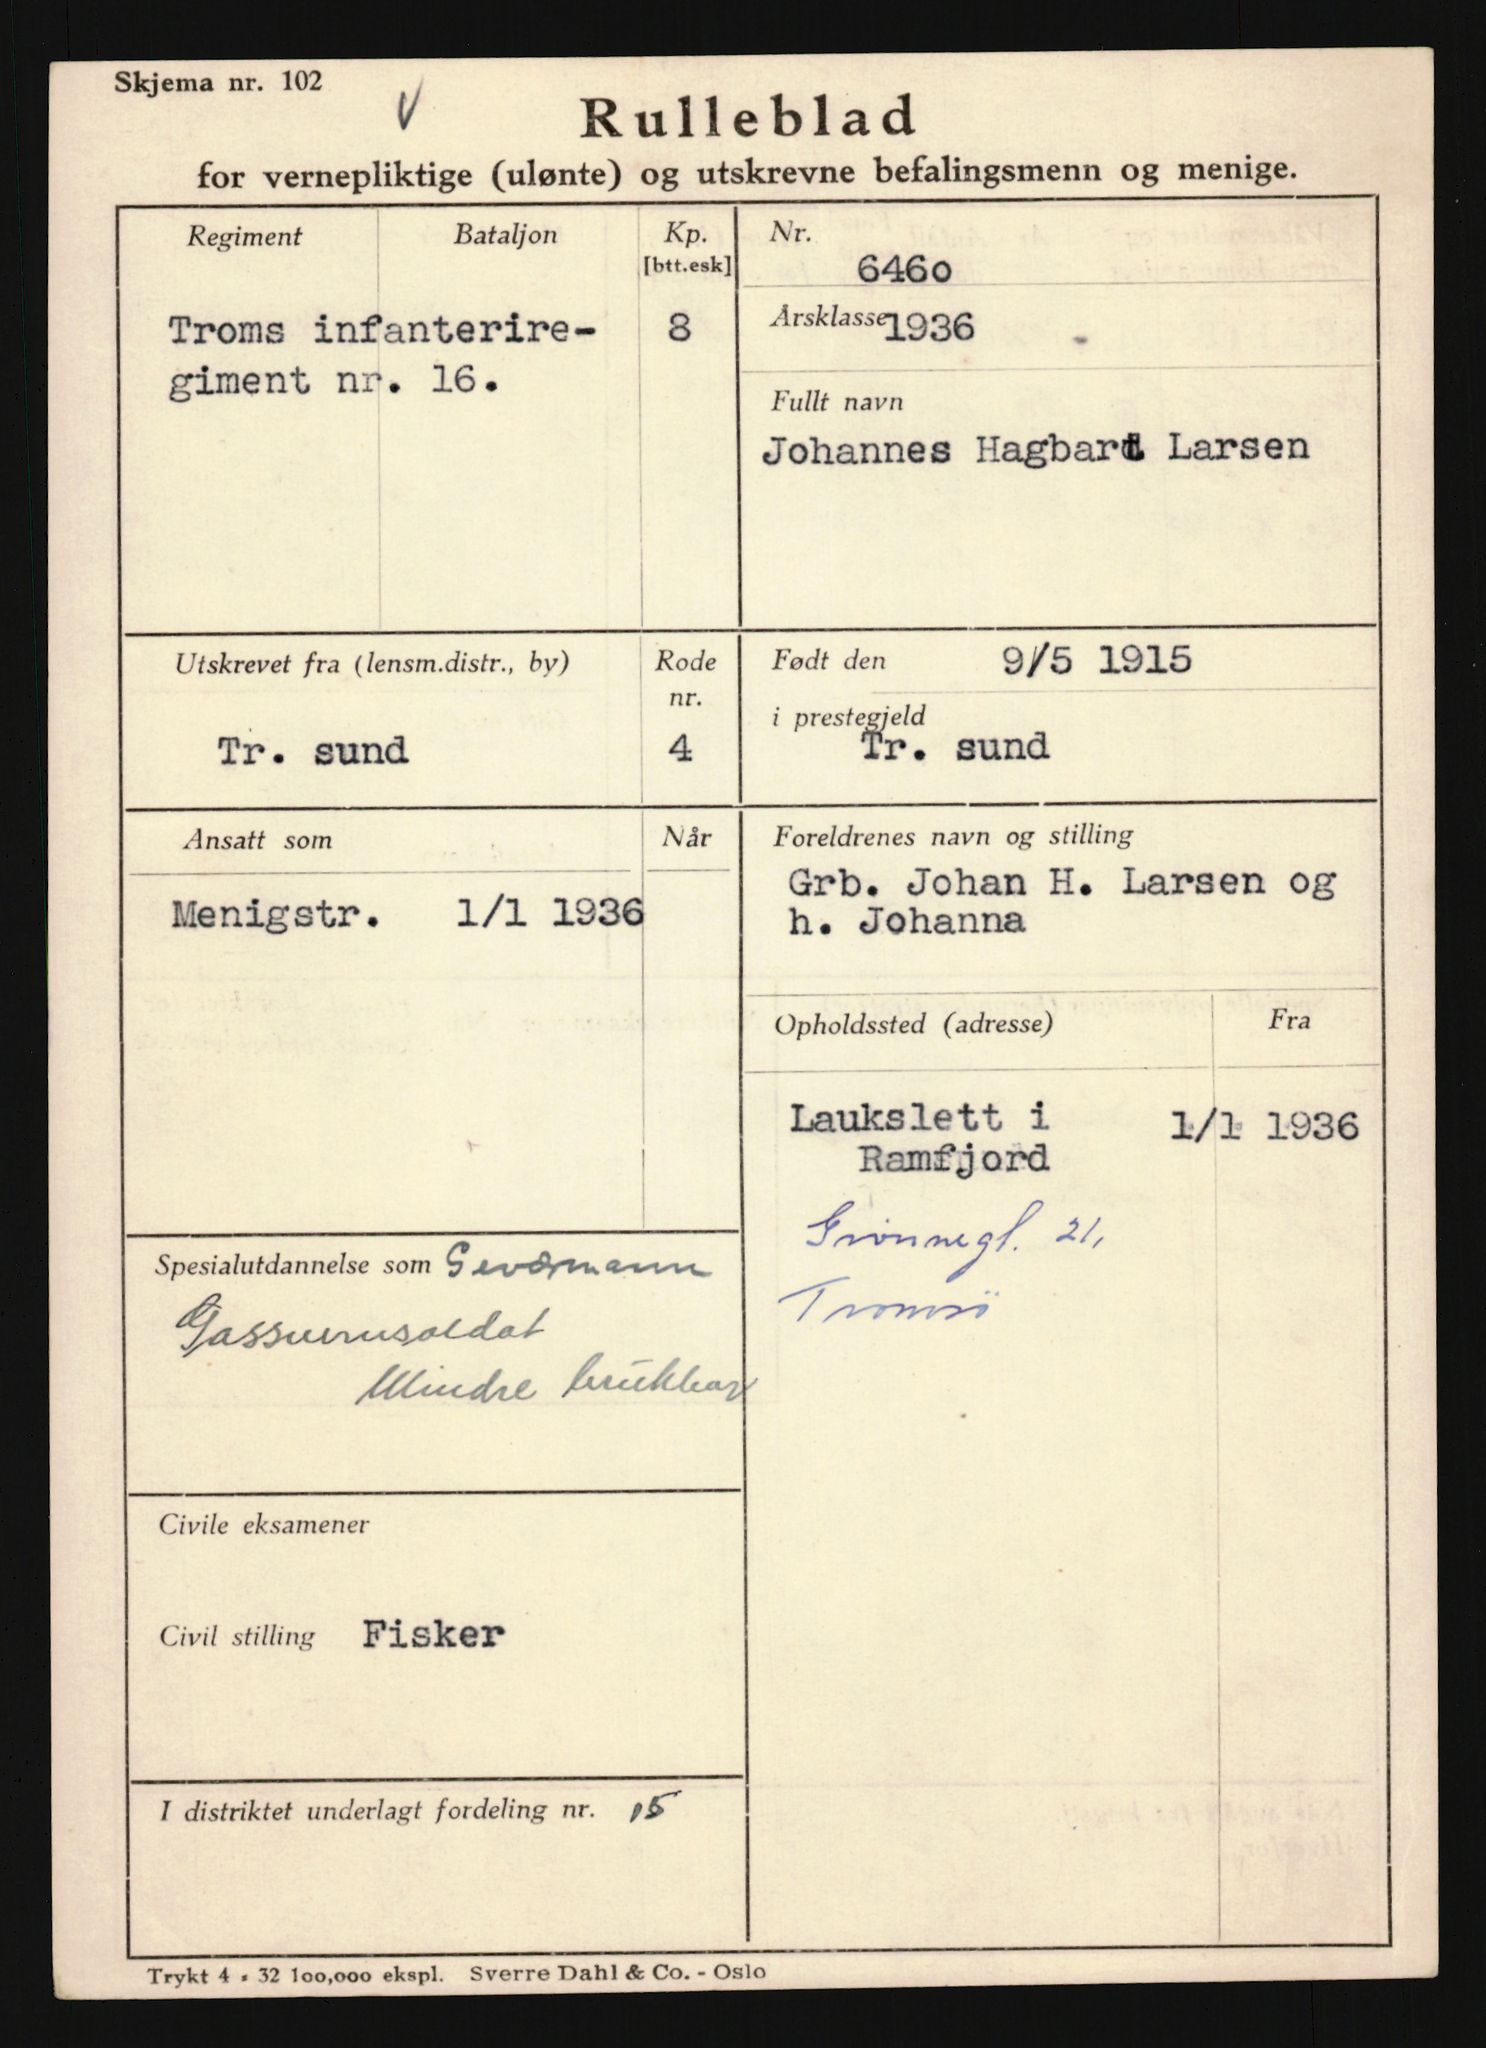 Skjema nr. 102
V
Rulleblad
for vernepliktige (ulønte) og utskrevne befalingsmenn og menige.
Regiment
Bataljon
Kp.
[btt.esk]
Troms infanterire-
giment nr. 16.
8
Nr.
6460
Årsklasse 1936
Fullt navn
Johannes Hagbart Larsen
Utskrevet fra (lensm.distr., by)
Rode
nr.
Tr. sund
4
Født den 9/5 1915
i prestegjeld
Tr. sund
Ansatt som
Når
Menigstr. 1/1 1936
Foreldrenes navn og stilling
Grb. Johan H. Larsen og
h. Johanna
Opholdssted (adresse)
Fra
Laukslett i 1/1 1936
Ramfjord
Grønnegt. 21,
Tromsö
Spesialutdannelse som Geværmann
Gassvernsoldat
Mindre brukbar
Civile eksamener
Civil stilling Fisker
I distriktet underlagt fordeling nr. 15
Trykt 4 - 32 100,000 ekspl. Sverre Dahl & Co. - Oslo